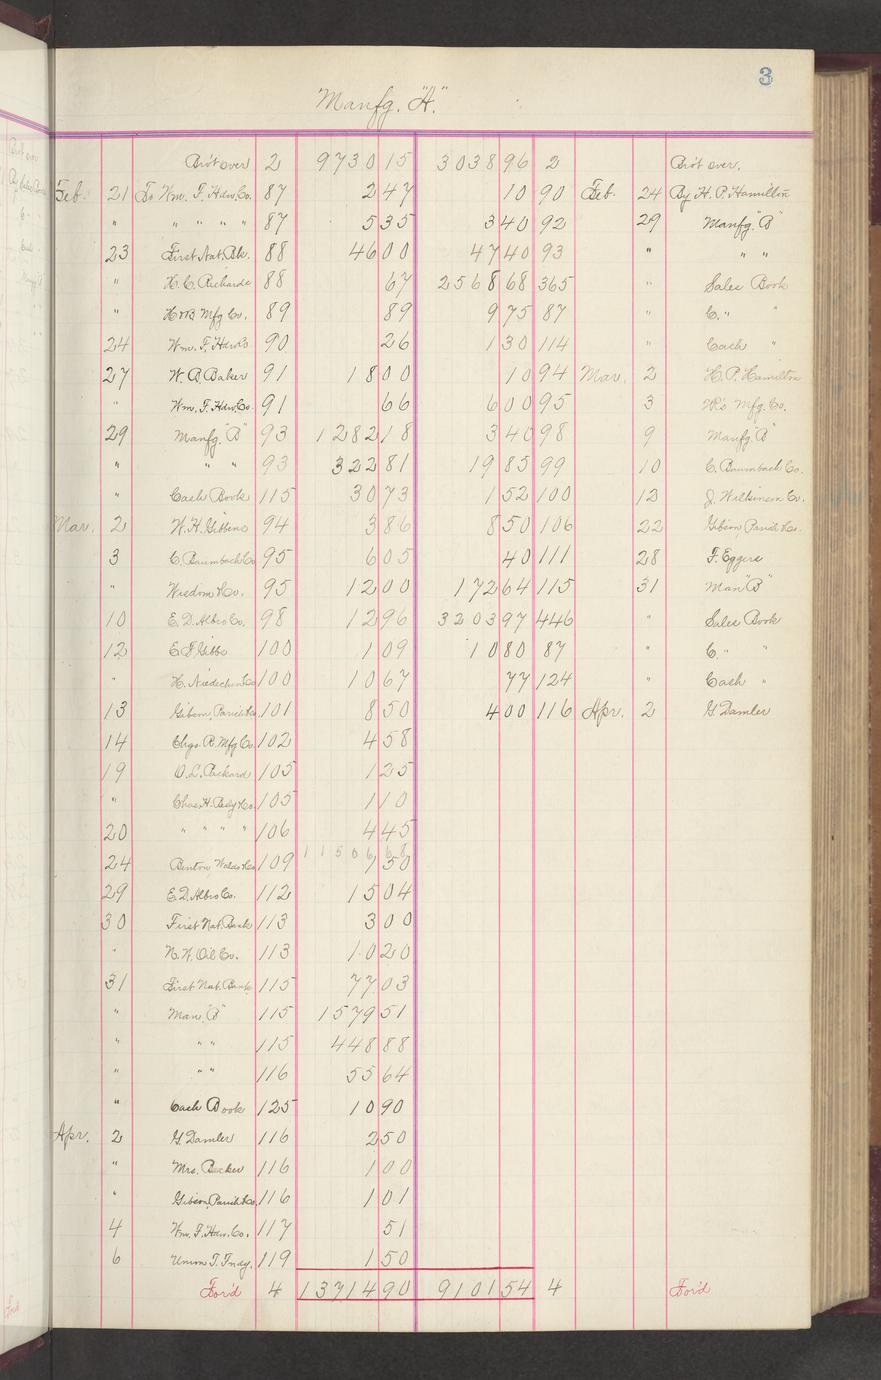 3
Manfg. "A."
Bro't over 2 9730 15 3038 96 2 Bro't over.
Feb. 21 To Wm. F. Hdw. Co. 87 2 47 10 90 Feb. 24 By H. P. Hamilton
" " " " " 87 5 35 3 40 92 29 Manfg. "B"
23 First Nat. Bk. 88 46 00 47 40 93 " " "
" H. C. Rickards 88 67 2568 68 365 " Sales Book
" Mfg Co. 89 89 9 75 87 " C. " "
24 Wm. F. Hdw Co 90 26 1 30 114 " Cash "
27 W. B. Baker 91 18 00 10 94 Mar. 2 H. P. Hamilton
" Wm. F. Hdw. Co. 91 66 6 00 95 3 Mfg. Co.
29 Manfg. "B" 93 1282 18 3 40 98 9 Manfg. "B"
" " " 93 322 81 19 85 99 10 C. Baumbach Co.
" Cash Book 115 30 73 1 52 100 12 J. Wilkinson Co.
Mar. 2 W. H. Gibbens 94 3 86 8 50 106 22 Gibson, Parish & Co.
3 C. Baumbach Co 95 6 05 40 111 28 F. Eggers
" Wisdom & Co. 95 12 00 172 64 115 31 Man "B"
10 E. D. Albro Co. 98 12 96 3203 97 446 " Sales Book
12 E. F. Gibbs 100 1 09 10 80 87 " C. " "
" H. Niedecken Co 100 10 67 77 124 " Cash "
13 Gibson, Parish & Co. 101 8 50 4 00 116 Apr. 2 G. Damler
14 Chgo. R. Mfg Co. 102 4 58
19 O. L. Packard 105 1 25
" Chas. H. & Co. 105 1 10
20 " " " " 106 4 45
11506 68
24 Benton Waldo & Co 109 1 50
29 E. D. Albro Co. 112 15 04
30 First Nat. Bank 113 3 00
" N. W. Oil Co. 113 10 20
31 First Nat. Bank 115 77 03
" Man. "B" 115 1579 51
" " " 115 448 88
" " " 116 55 64
" Cash Book 125 10 90
Apr. 2 G. Damler 116 2 50
" Mrs. Becker 116 1 00
" Gibson, Parish & Co. 116 1 01
4 Wm. F. Hdw. Co. 117 51
6 Union T. Fndy. 119 1 50
For'd 4 13714 90 9101 54 4 For'd